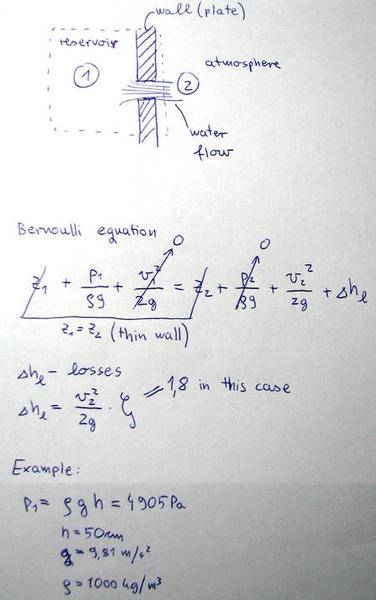 wall (plate)
reservoir
1
2
atmosphere
water
flow
Bernoulli equation
0 0
z₁ + p₁/ρg + v₁²/2g = z₂ + p₂/ρg + v₂²/2g + Δhₗ
z₁ = z₂ (thin wall)
Δhₗ - losses
Δhₗ = v₂²/2g · ζ = 1,8 in this case
Example:
p₁ = ρgh = 4905 Pa
h = 50cm
g = 9,81 m/s²
ρ = 1000 kg/m³